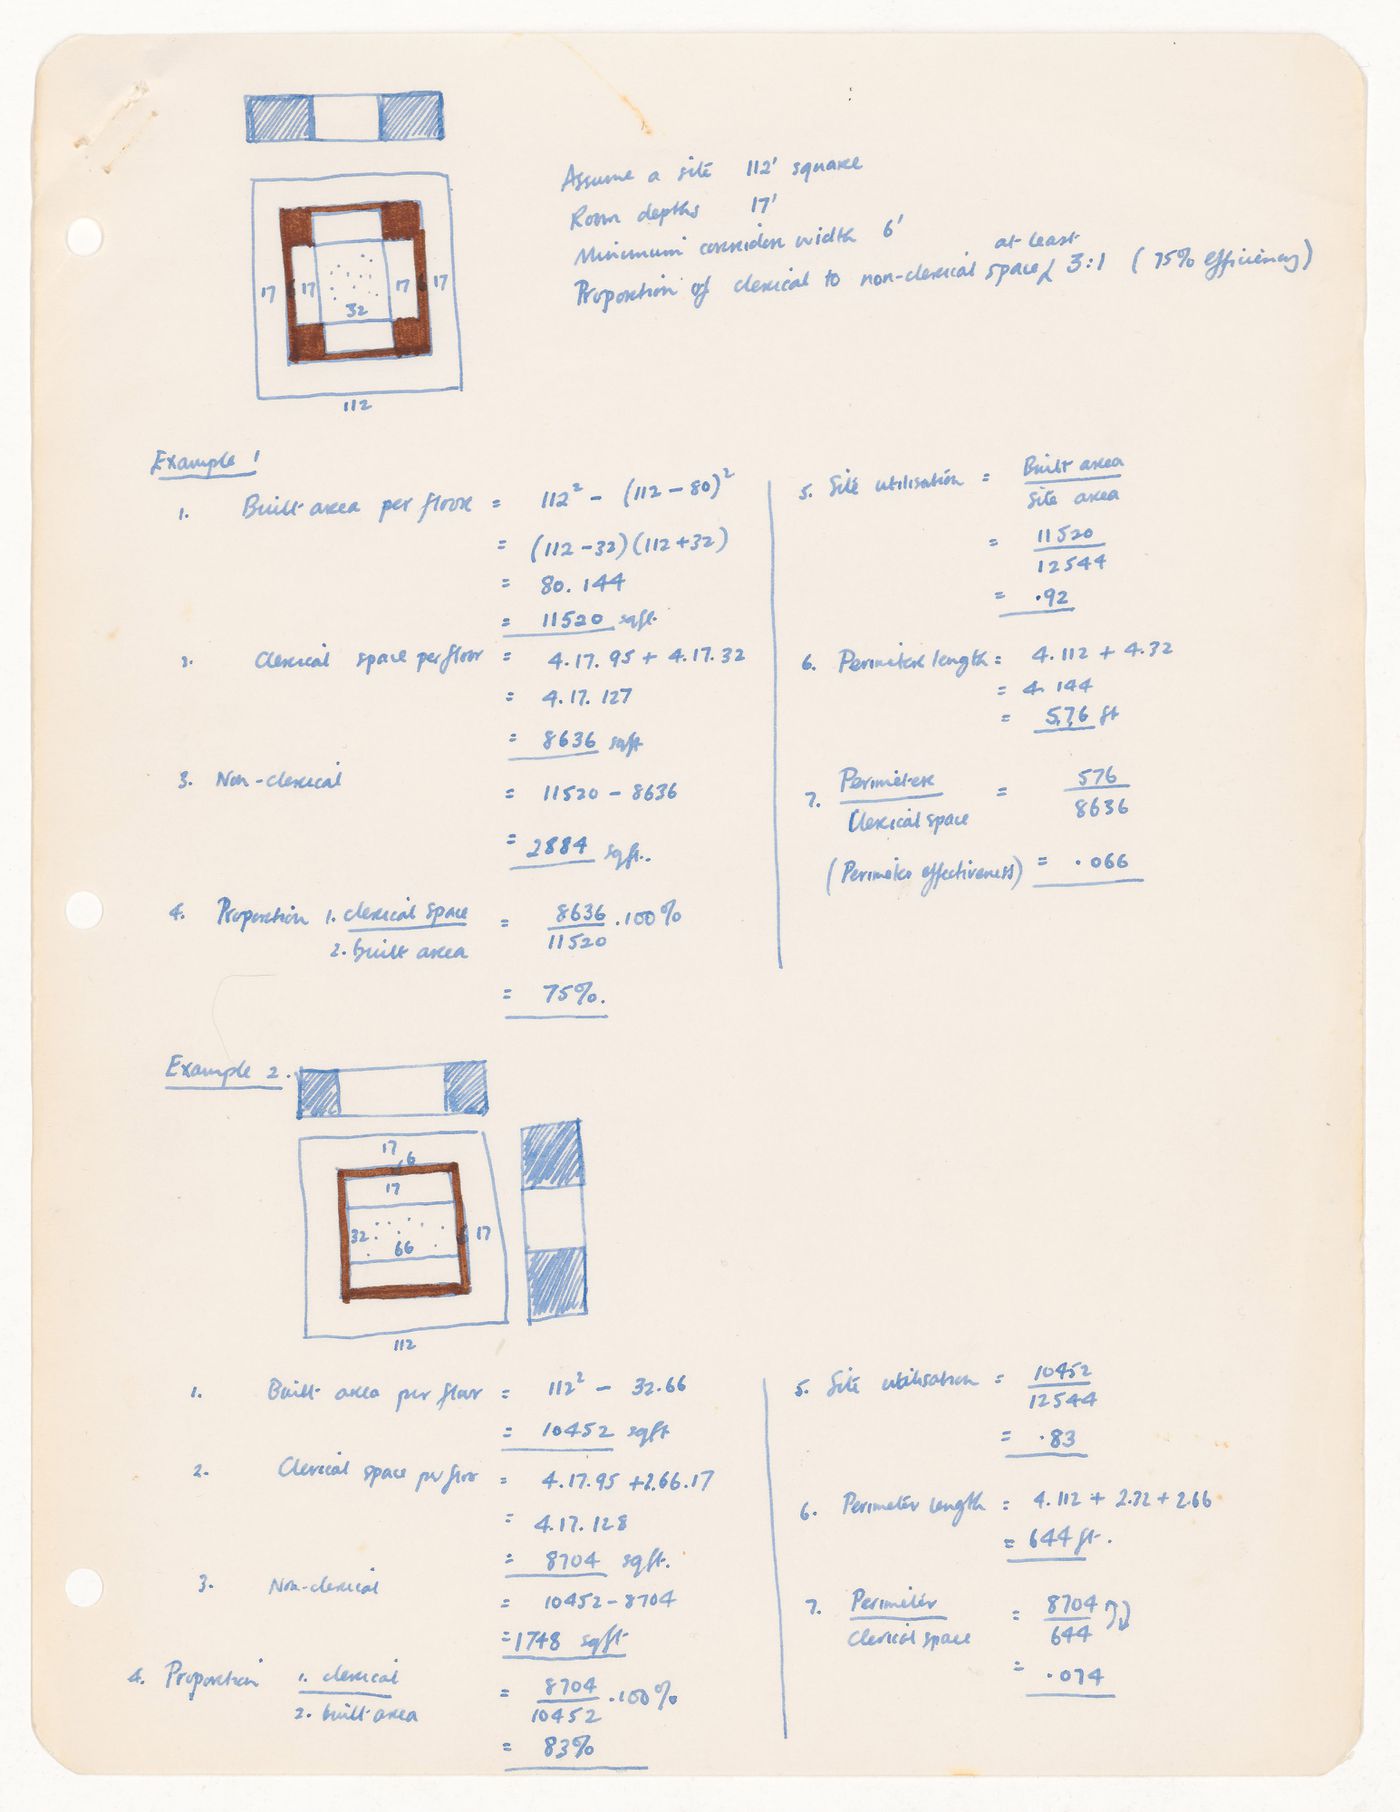 Assume a site 112' square
Room depths 17'
Minimum corridor width 6'
at least
Proportion of clerical to non-clerical space 3:1 (75% efficiency)
17 17 17 17
32
112
Example 1
1. Built area per floor = 112² - (112 - 80)²
= (112 - 32)(112 + 32)
= 80. 144
= 11520 sqft.
2. Clerical space per floor = 4.17.95 + 4.17.32
= 4.17.127
= 8636 sqft
3. Non-clerical = 11520 - 8636
= 2884 sqft.
4. Proportion 1. clerical space = 8636 .100%
2. built area 11520
= 75%.
5. Site utilisation = Built area
Site area
= 11520
12544
= .92
6. Perimeter length = 4.112 + 4.32
= 4.144
= 576 ft
7. Perimeter = 576
Clerical space 8636
(Perimeter effectiveness) = .066
Example 2.
17
6
17
32 17
66
112
1. Built area per floor = 112² - 32.66
= 10452 sqft
2. Clerical space per floor = 4.17.95 + 2.66.17
= 4.17.128
= 8704 sqft.
3. Non-clerical = 10452 - 8704
= 1748 sqft
4. Proportion 1. clerical = 8704 .100%
2. built area 10452
= 83%
5. Site utilisation = 10452
12544
= .83
6. Perimeter length = 4.112 + 2.32 + 2.66
= 644 ft.
7. Perimeter = 8704
Clerical space 644
= .074